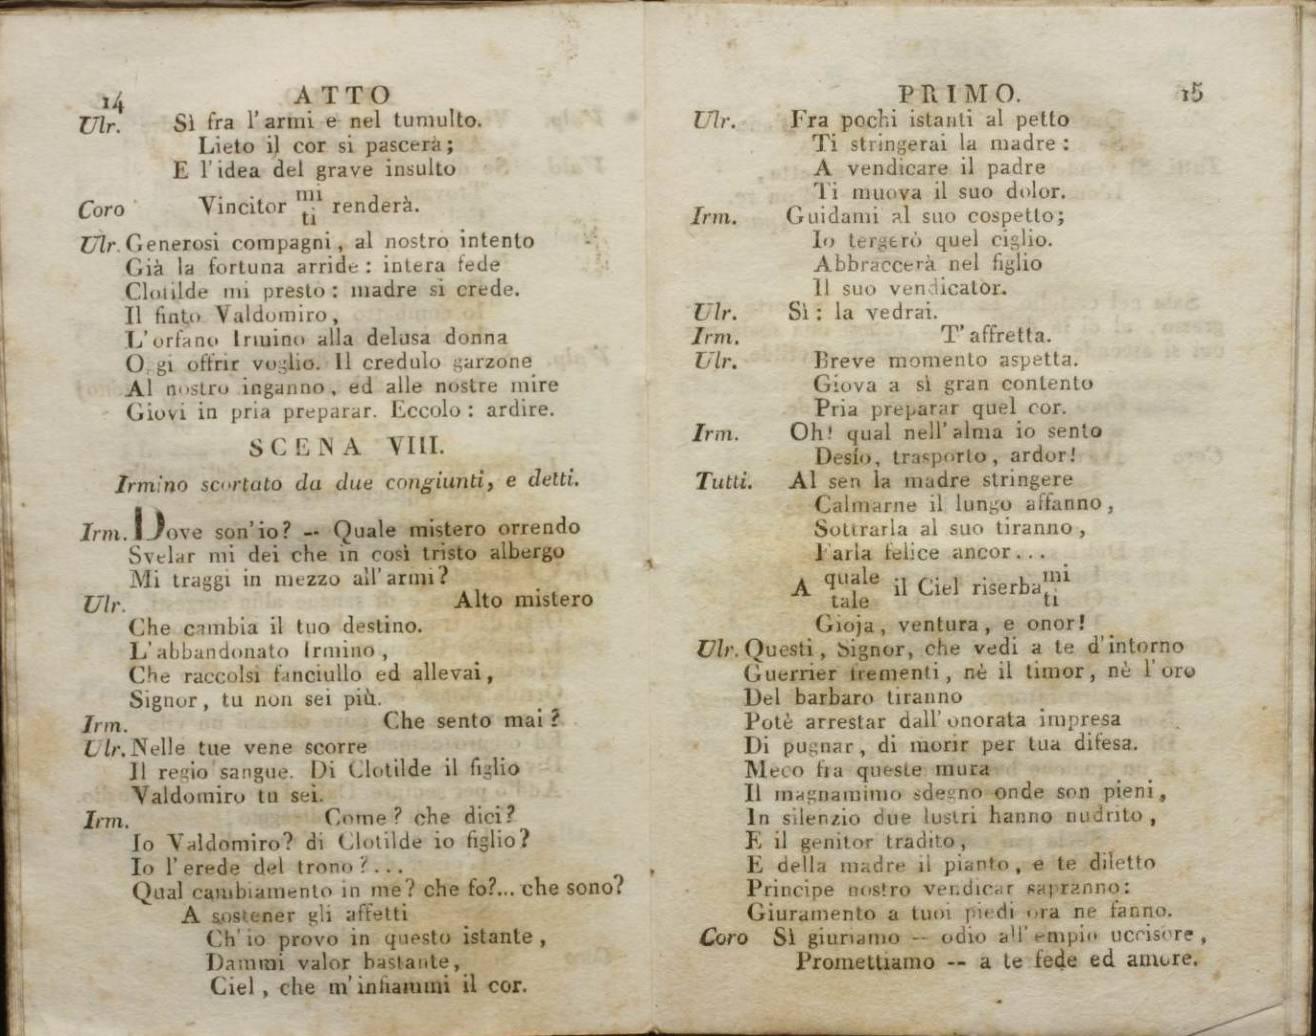 14 ATTO
Ulr. Sì fra l'armi e nel tumulto.
Lieto il cor si pascerà;
E l'idea del grave insulto
Coro Vincitor mi ti renderà.
Ulr. Generosi compagni, al nostro intento
Già la fortuna arride: intera fede
Clotilde mi presto: madre si crede.
Il finto Valdomiro,
L'orfano Irmino alla delusa donna
Oggi offrir voglio. Il credulo garzone
Al nostro inganno, ed alle nostre mire
Giovi in pria preparar. Eccolo: ardire.
SCENA VIII.
Irmino scortato da due congiunti, e detti.
Irm. Dove son'io? -- Quale mistero orrendo
Svelar mi dei che in così tristo albergo
Mi traggi in mezzo all'armi?
Ulr. Alto mistero
Che cambia il tuo destino.
L'abbandonato Irmino,
Che raccolsi fanciullo ed allevai,
Signor, tu non sei più.
Irm. Che sento mai?
Ulr. Nelle tue vene scorre
Il regio sangue. Di Clotilde il figlio
Valdomiro tu sei.
Irm. Come? che dici?
Io Valdomiro? di Clotilde io figlio?
Io l'erede del trono?...
Qual cambiamento in me? che fo?... che sono?
A sostener gli affetti
Ch'io provo in questo istante,
Dammi valor bastante,
Ciel, che m'infiammi il cor.
PRIMO. 15
Ulr. Fra pochi istanti al petto
Ti stringerai la madre:
A vendicare il padre
Ti muova il suo dolor.
Irm. Guidami al suo cospetto;
Io tergerò quel ciglio.
Abbraccerà nel figlio
Il suo vendicatòr.
Ulr. Sì: la vedrai.
Irm. T'affretta.
Ulr. Breve momento aspetta.
Giova a sì gran contento
Pria preparar quel cor.
Irm. Oh! qual nell'alma io sento
Desío, trasporto, ardor!
Tutti. Al sen la madre stringere
Calmarne il lungo affanno,
Sottrarla al suo tiranno,
Farla felice ancor...
A quale tale il Ciel riserba mi ti
Gioja, ventura, e onor!
Ulr. Questi, Signor, che vedi a te d'intorno
Guerrier frementi, nè il timor, nè l'oro
Del barbaro tiranno
Potè arrestar dall'onorata impresa
Di pugnar, di morir per tua difesa.
Meco fra queste mura
Il magnamimo sdegno onde son pieni,
In silenzio due lustri hanno nudrito,
E il genitor tradito,
E della madre il pianto, e te diletto
Principe nostro vendicar sapranno:
Giuramento a tuoi piedi ora ne fanno.
Coro Sì giuriamo -- odio all'empio uccisore,
Promettiamo -- a te fede ed amore.